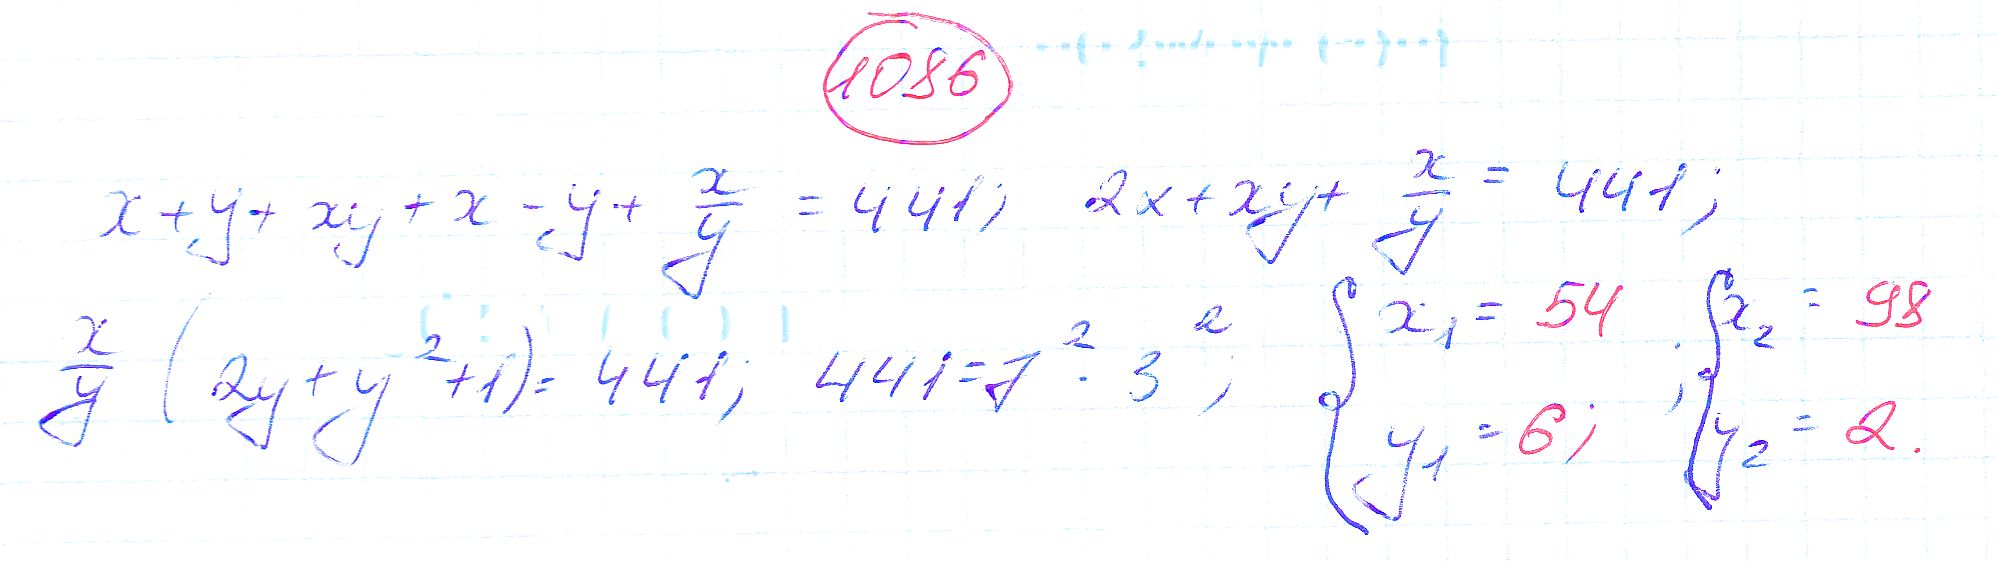 1086
x + y + xy + x - y + x/y = 441; 2x + xy + x/y = 441;
x/y (2y + y² + 1) = 441; 441 = 7² · 3²; { x₁ = 54 y₁ = 6; ; { x₂ = 98 y₂ = 2.